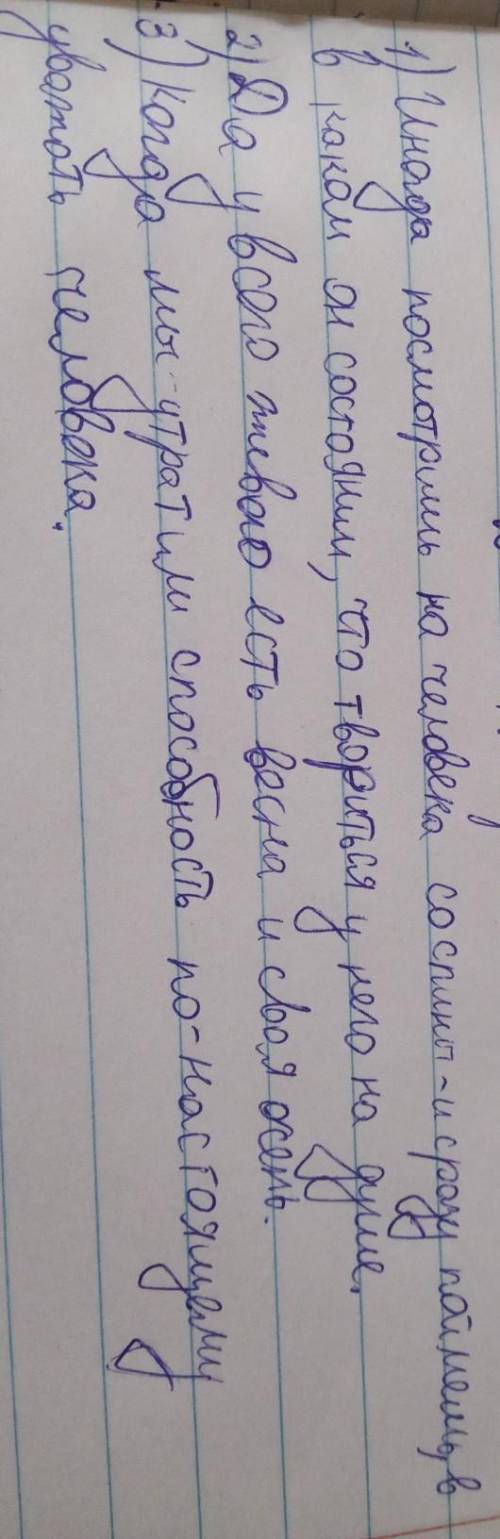 1) Иногда посмотришь на человека соспины-и сразу поймешь, в
в каком он состоянии, что твориться у него на душе.
2) Да и всего живого есть весна и своя осень.
3) Когда мы утратили способность по-настоящему
уважать человека.